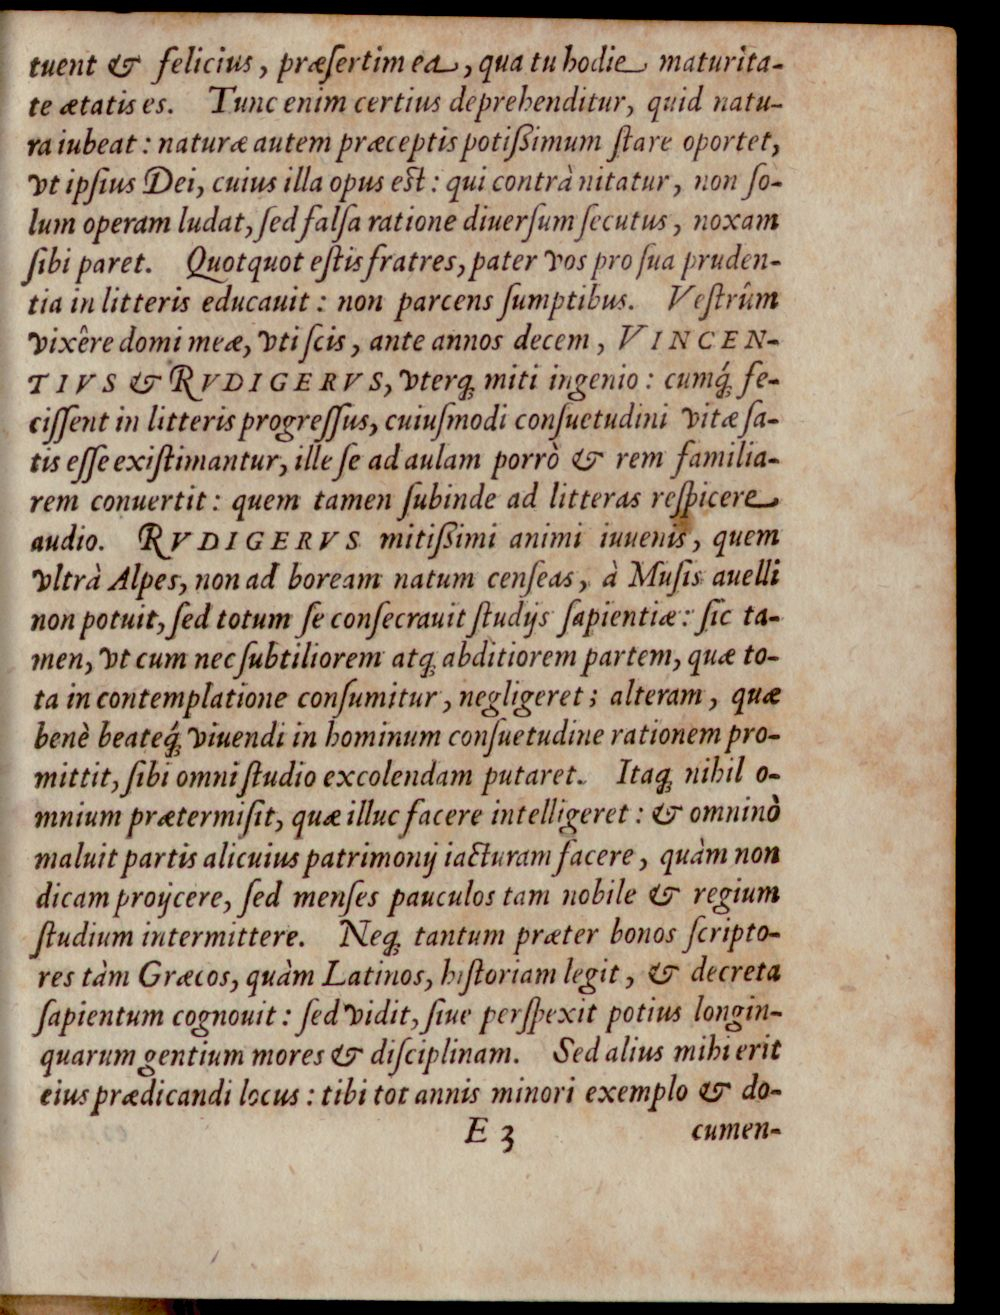 tuent & felicius, præſertim ea, qua tu hodie maturita-
te ætatis es. Tunc enim certius deprehenditur, quid natu-
ra iubeat: naturæ autem præceptis potißimum ſtare oportet,
vt ipſius Dei, cuius illa opus eſt: qui contrà nitatur, non ſo-
lum operam ludat, ſed falſa ratione diuerſum ſecutus, noxam
ſibi paret. Quotquot eſtis fratres, pater vos pro ſua pruden-
tia in litteris educauit: non parcens ſumptibus. Veſtrûm
vixêre domi meæ, vti ſcis, ante annos decem, VINCEN-
TIVS & RVDIGERVS, vterq́; miti ingenio: cumq́; fe-
ciſſent in litteris progreſſus, cuiuſmodi conſuetudini vitæ ſa-
tis eſſe exiſtimantur, ille ſe ad aulam porrò & rem familia-
rem conuertit: quem tamen ſubinde ad litteras reſpicere
audio. RVDIGERVS mitißimi animi iuuenis, quem
vltrà Alpes, non ad boream natum cenſeas, à Muſis auelli
non potuit, ſed totum ſe conſecrauit ſtudijs ſapientiæ: ſic ta-
men, vt cum nec ſubtiliorem atq; abditiorem partem, quæ to-
ta in contemplatione conſumitur, negligeret; alteram, quæ
benè beateq́; viuendi in hominum conſuetudine rationem pro-
mittit, ſibi omni ſtudio excolendam putaret. Itaq; nihil o-
mnium prætermiſit, quæ illuc facere intelligeret: & omninò
maluit partis alicuius patrimonij iacturam facere, quàm non
dicam proijcere, ſed menſes pauculos tam nobile & regium
ſtudium intermittere. Neq; tantum præter bonos ſcripto-
res tàm Græcos, quàm Latinos, hiſtoriam legit, & decreta
ſapientum cognouit: ſed vidit, ſiue perſpexit potius longin-
quarum gentium mores & diſciplinam. Sed alius mihi erit
eius prædicandi locus: tibi tot annis minori exemplo & do-
E 3 cumen-